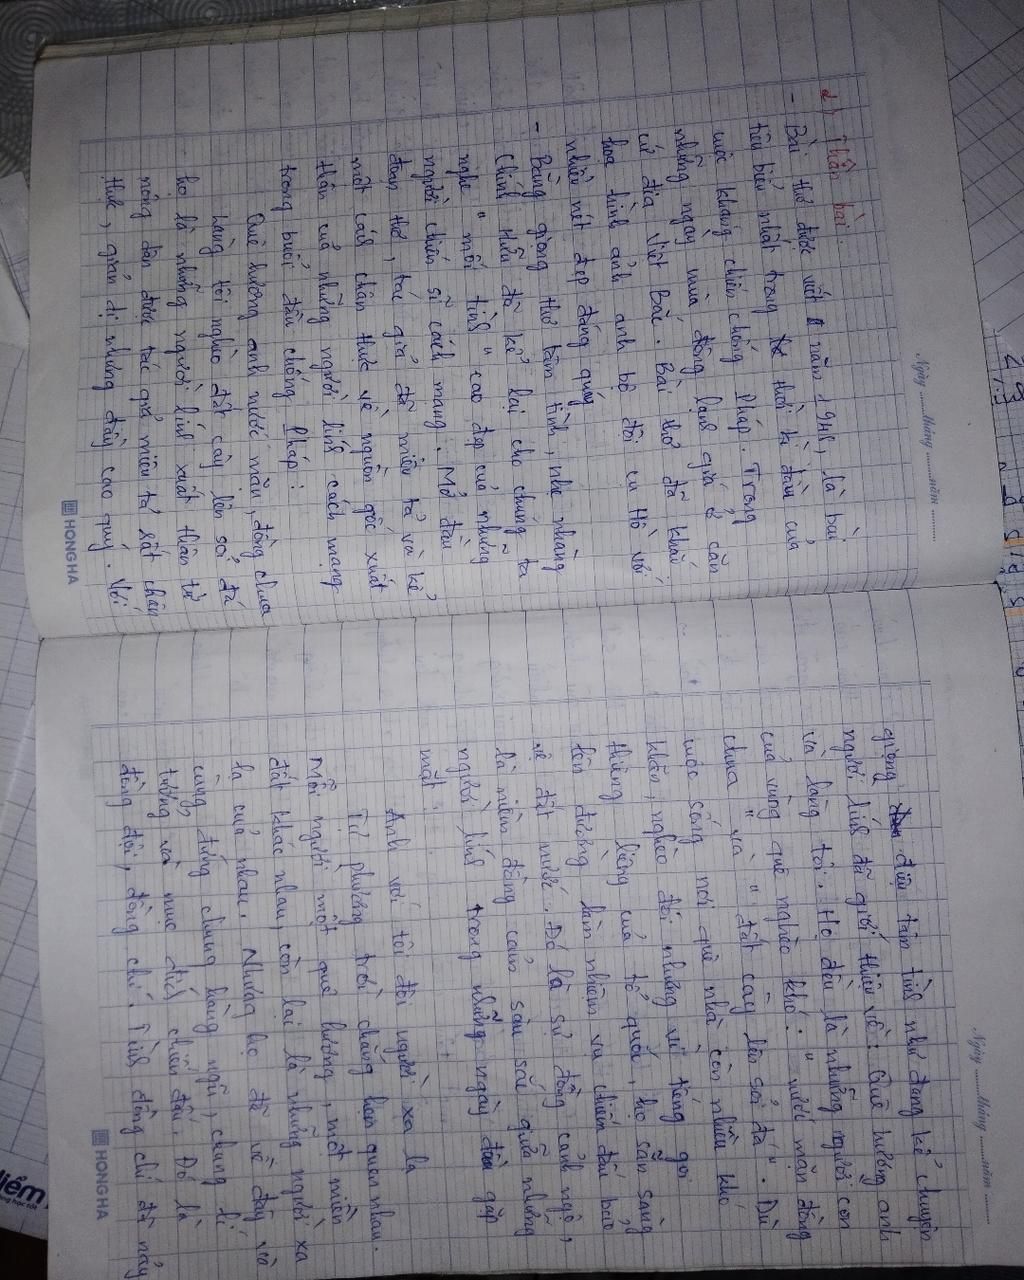 Ngày ........ tháng ........ năm ........
2) Thân bài.
- Bài thơ được viết năm 1948, là bài
tiêu biểu nhất trong thời kì đầu của
cuộc kháng chiến chống Pháp. Trong
những ngày mùa đông lạnh giá ở căn
cứ địa Việt Bắc. Bài thơ đã khắc
hoạ hình ảnh anh bộ đội cụ Hồ với
nhiều nét đẹp đáng quý
- Bằng giọng thơ tâm tình, nhẹ nhàng
Chính Hữu đã kể lại cho chúng ta
nghe " mối tình " cao đẹp của những
người chiến sĩ cách mạng. Mở đầu
đoạn thơ, tác giả đã miêu tả và kể
một cách chân thực về nguồn gốc xuất
thân của những người lính cách mạng
trong buổi đầu chống Pháp:
Quê hương anh nước mặn, đồng chua
Làng tôi nghèo đất cày lên sỏi đá
họ là những người lính xuất thân từ
nông dân được tác giả miêu tả rất chân
thực, giản dị nhưng đầy cao quý. Với
HONG HA
Ngày ........ tháng ........ năm ........
giọng điệu tâm tình như đang kể chuyện
người lính đã giới thiệu về: Quê hương anh
và làng tôi. Họ đều là những người con
của vùng quê nghèo khó: " nước mặn đồng
chua " và " đất cày lên sỏi đá". Dù
cuộc sống nơi quê nhà còn nhiều khó
khăn, nghèo đói nhưng vì tiếng gọi
thiêng liêng của tổ quốc, họ sẵn sàng
lên đường làm nhiệm vụ chiến đấu bảo
vệ đất nước. Đó là sự đồng cảnh ngộ,
là niềm đồng cảm sâu sắc giữa những
người lính trong những ngày đầu gặp
mặt:
Anh với tôi đôi người xa lạ
Tự phương trời chẳng hẹn quen nhau.
Mỗi người một quê hương, một miền
đất khác nhau, còn lại là những người xa
lạ của nhau. Nhưng họ đã về đây và
cùng đứng chung hàng ngũ, chung lí
tưởng và mục đích chiến đấu. Đó là
đồng đội, đồng chí. Tình đồng chí đã nảy
HONG HA
điểm